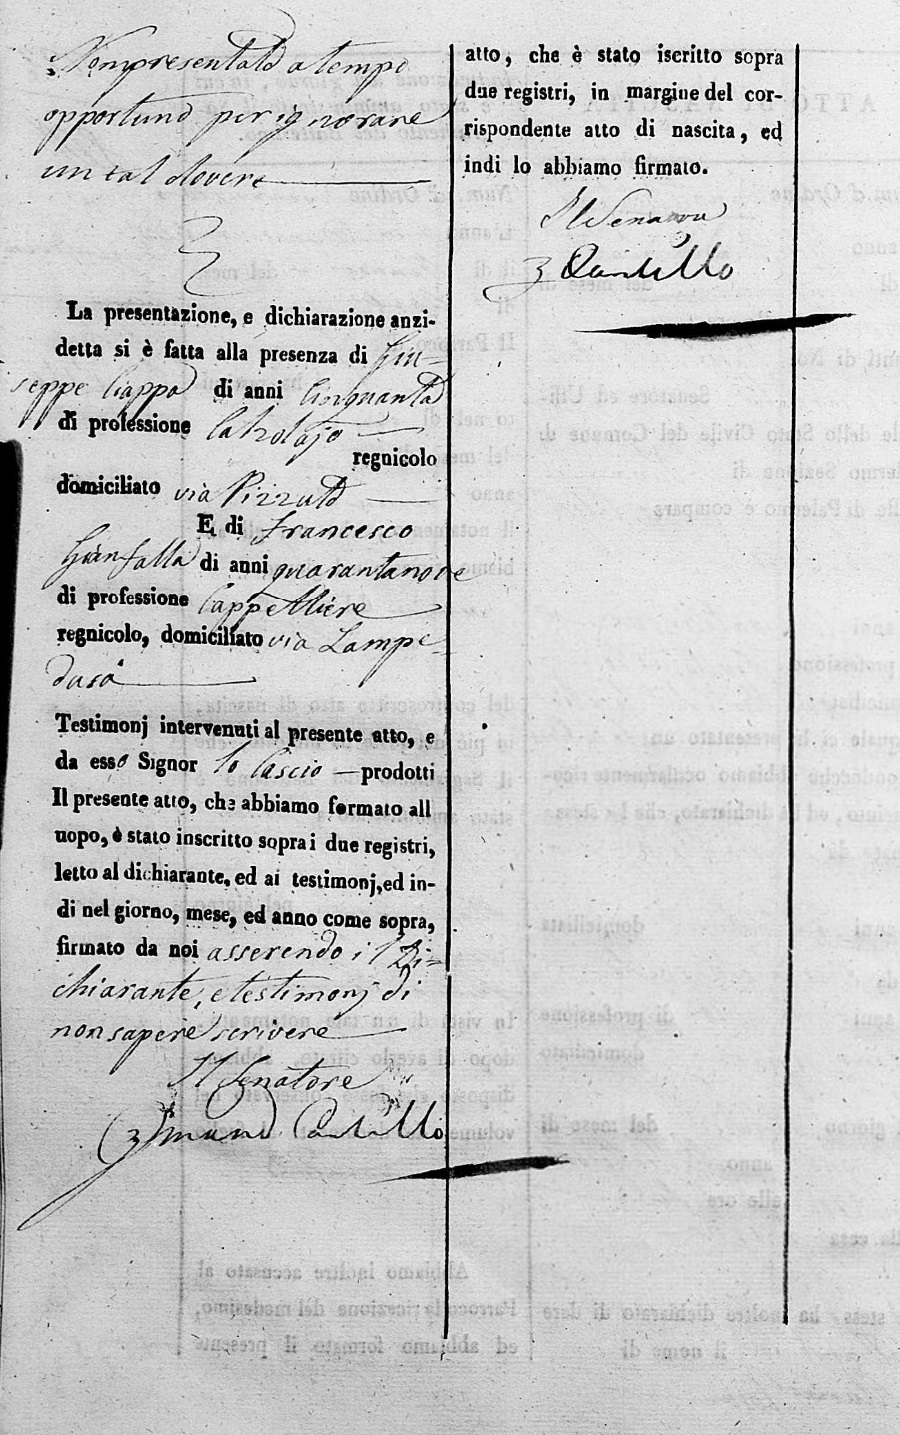 Non presentato a tempo
opportuno per ignorare
un tal dovere
La presentazione, e dichiarazione anzi-
detta si è fatta alla presenza di Giu-
seppe Ciappa di anni Cinquanta
di professione Calzolajo
regnicolo
domiciliato via Pizzuto
E di Francesco
Gianfalla di anni quarantanove
di professione Cappelliere
regnicolo, domiciliato via Lampe-
dusa
Testimonj intervenuti al presente atto, e
da esso Signor lo Cascio prodotti
Il presente atto, che abbiamo formato all
uopo, è stato inscritto sopra i due registri,
letto al dichiarante, ed ai testimonj, ed in-
di nel giorno, mese, ed anno come sopra,
firmato da noi asserendo il Di-
chiarante, e testimonj di
non sapere scrivere
Il Senatore
atto, che è stato iscritto sopra
due registri, in margine del cor-
rispondente atto di nascita, ed
indi lo abbiamo firmato.
Il Senatore